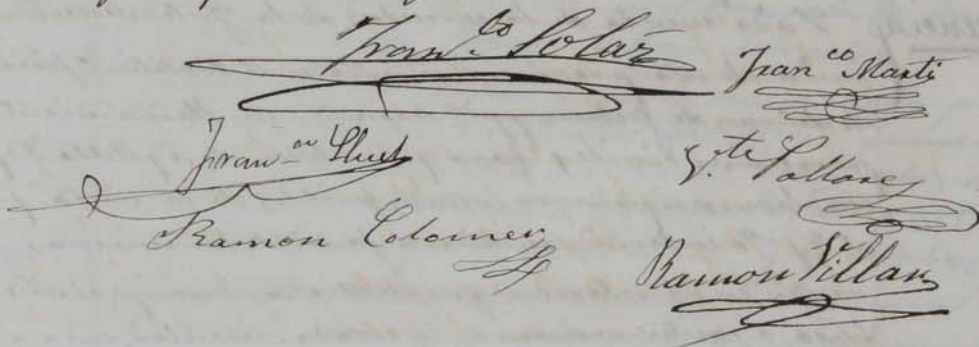 Fran.co Solaz
Fran co Marti
Fran.co Lluch
V.te Pallares
Ramon Colomer
Ramon Villar